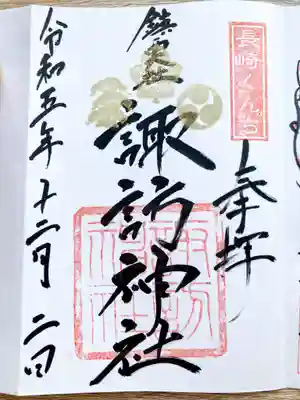 長崎くんち
奉拝
鎮西大社
諏訪神社
令和五年十二月二日